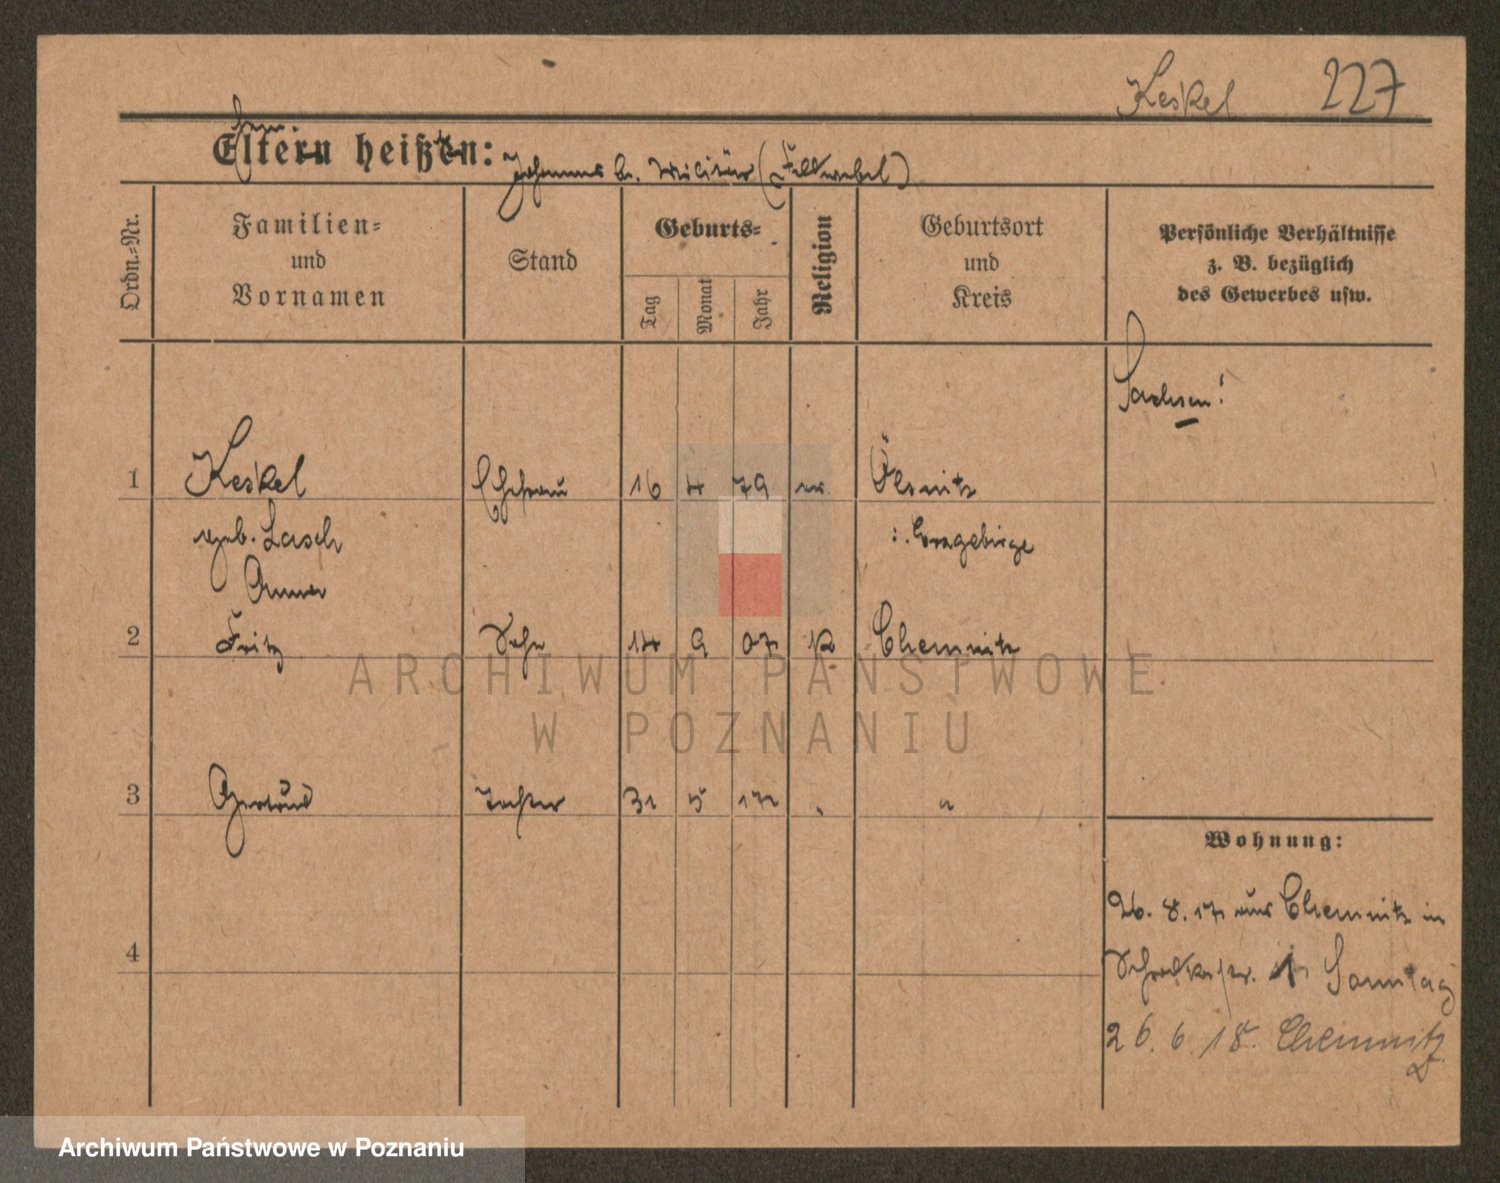 Keskel 227
Eltern heißen:
Johannes b. Militär (Feldwebel)
Ordn.-Nr.
Familien-
und
Vornamen
Stand
Geburts-
Tag
Monat
Jahr
Religion
Geburtsort
und
Kreis
Persönliche Verhältnisse
z. B. bezüglich
des Gewerbes usw.
Sachsen!
1 Keskel Ehefrau 16 4 79 Ölsnitz
geb. Lasch i. Erzgebirge
Anna
2 Fritz Sohn 14 9 07 Chemnitz
3 Gertrud Tochter 31 5 12 " "
Wohnung:
26. 8. 17 aus Chemnitz in
4
Sonntag
26. 6. 18. Chemnitz
ARCHIWUM PAŃSTWOWE
W POZNANIU
Archiwum Państwowe w Poznaniu